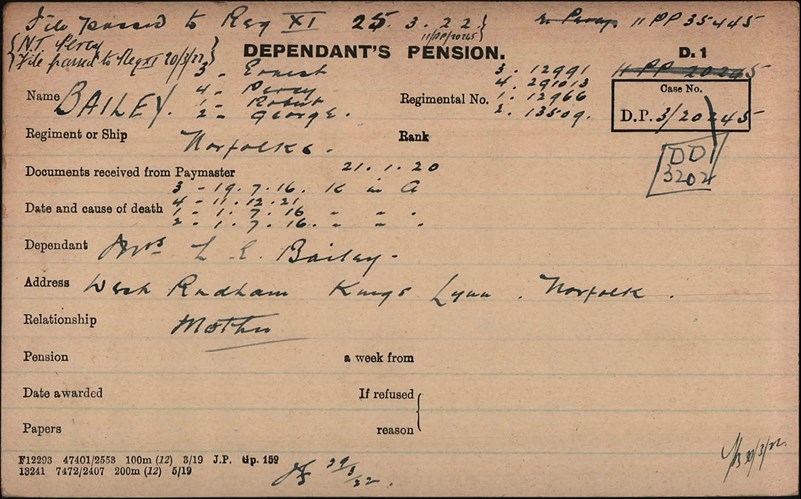 File passed to Reg XI 25.3.22} 11 PP 35445
11/PP/20245
{N.T. Percy
File passed to Reg XI 20/3/22}
DEPENDANT'S PENSION. D.1
11 PP 20245
3 - Ernest 3. 12991
4 - Percy 4. 291013
Name BAILEY. 1 - Robert Regimental No. 1. 12966
2 - George. 2. 13509.
Case No.
D.P. 3/20245
Regiment or Ship Norfolks. Rank
DD1
3202
Documents received from Paymaster 21.1.20
3 - 19.7.16. K in A
4 - 11.12.21
Date and cause of death 1 - 1.7.16 " " "
2 - 1.7.16. " " "
Dependant Mrs L E. Bailey.
Address West Rudham Kings Lynn. Norfolk.
Relationship Mother
Pension a week from
Date awarded If refused
Papers reason
F12293 47401/2553 100m (12) 3/19 J.P. Gp. 159
13241 7472/2407 200m (12) 5/19
29/3/22.